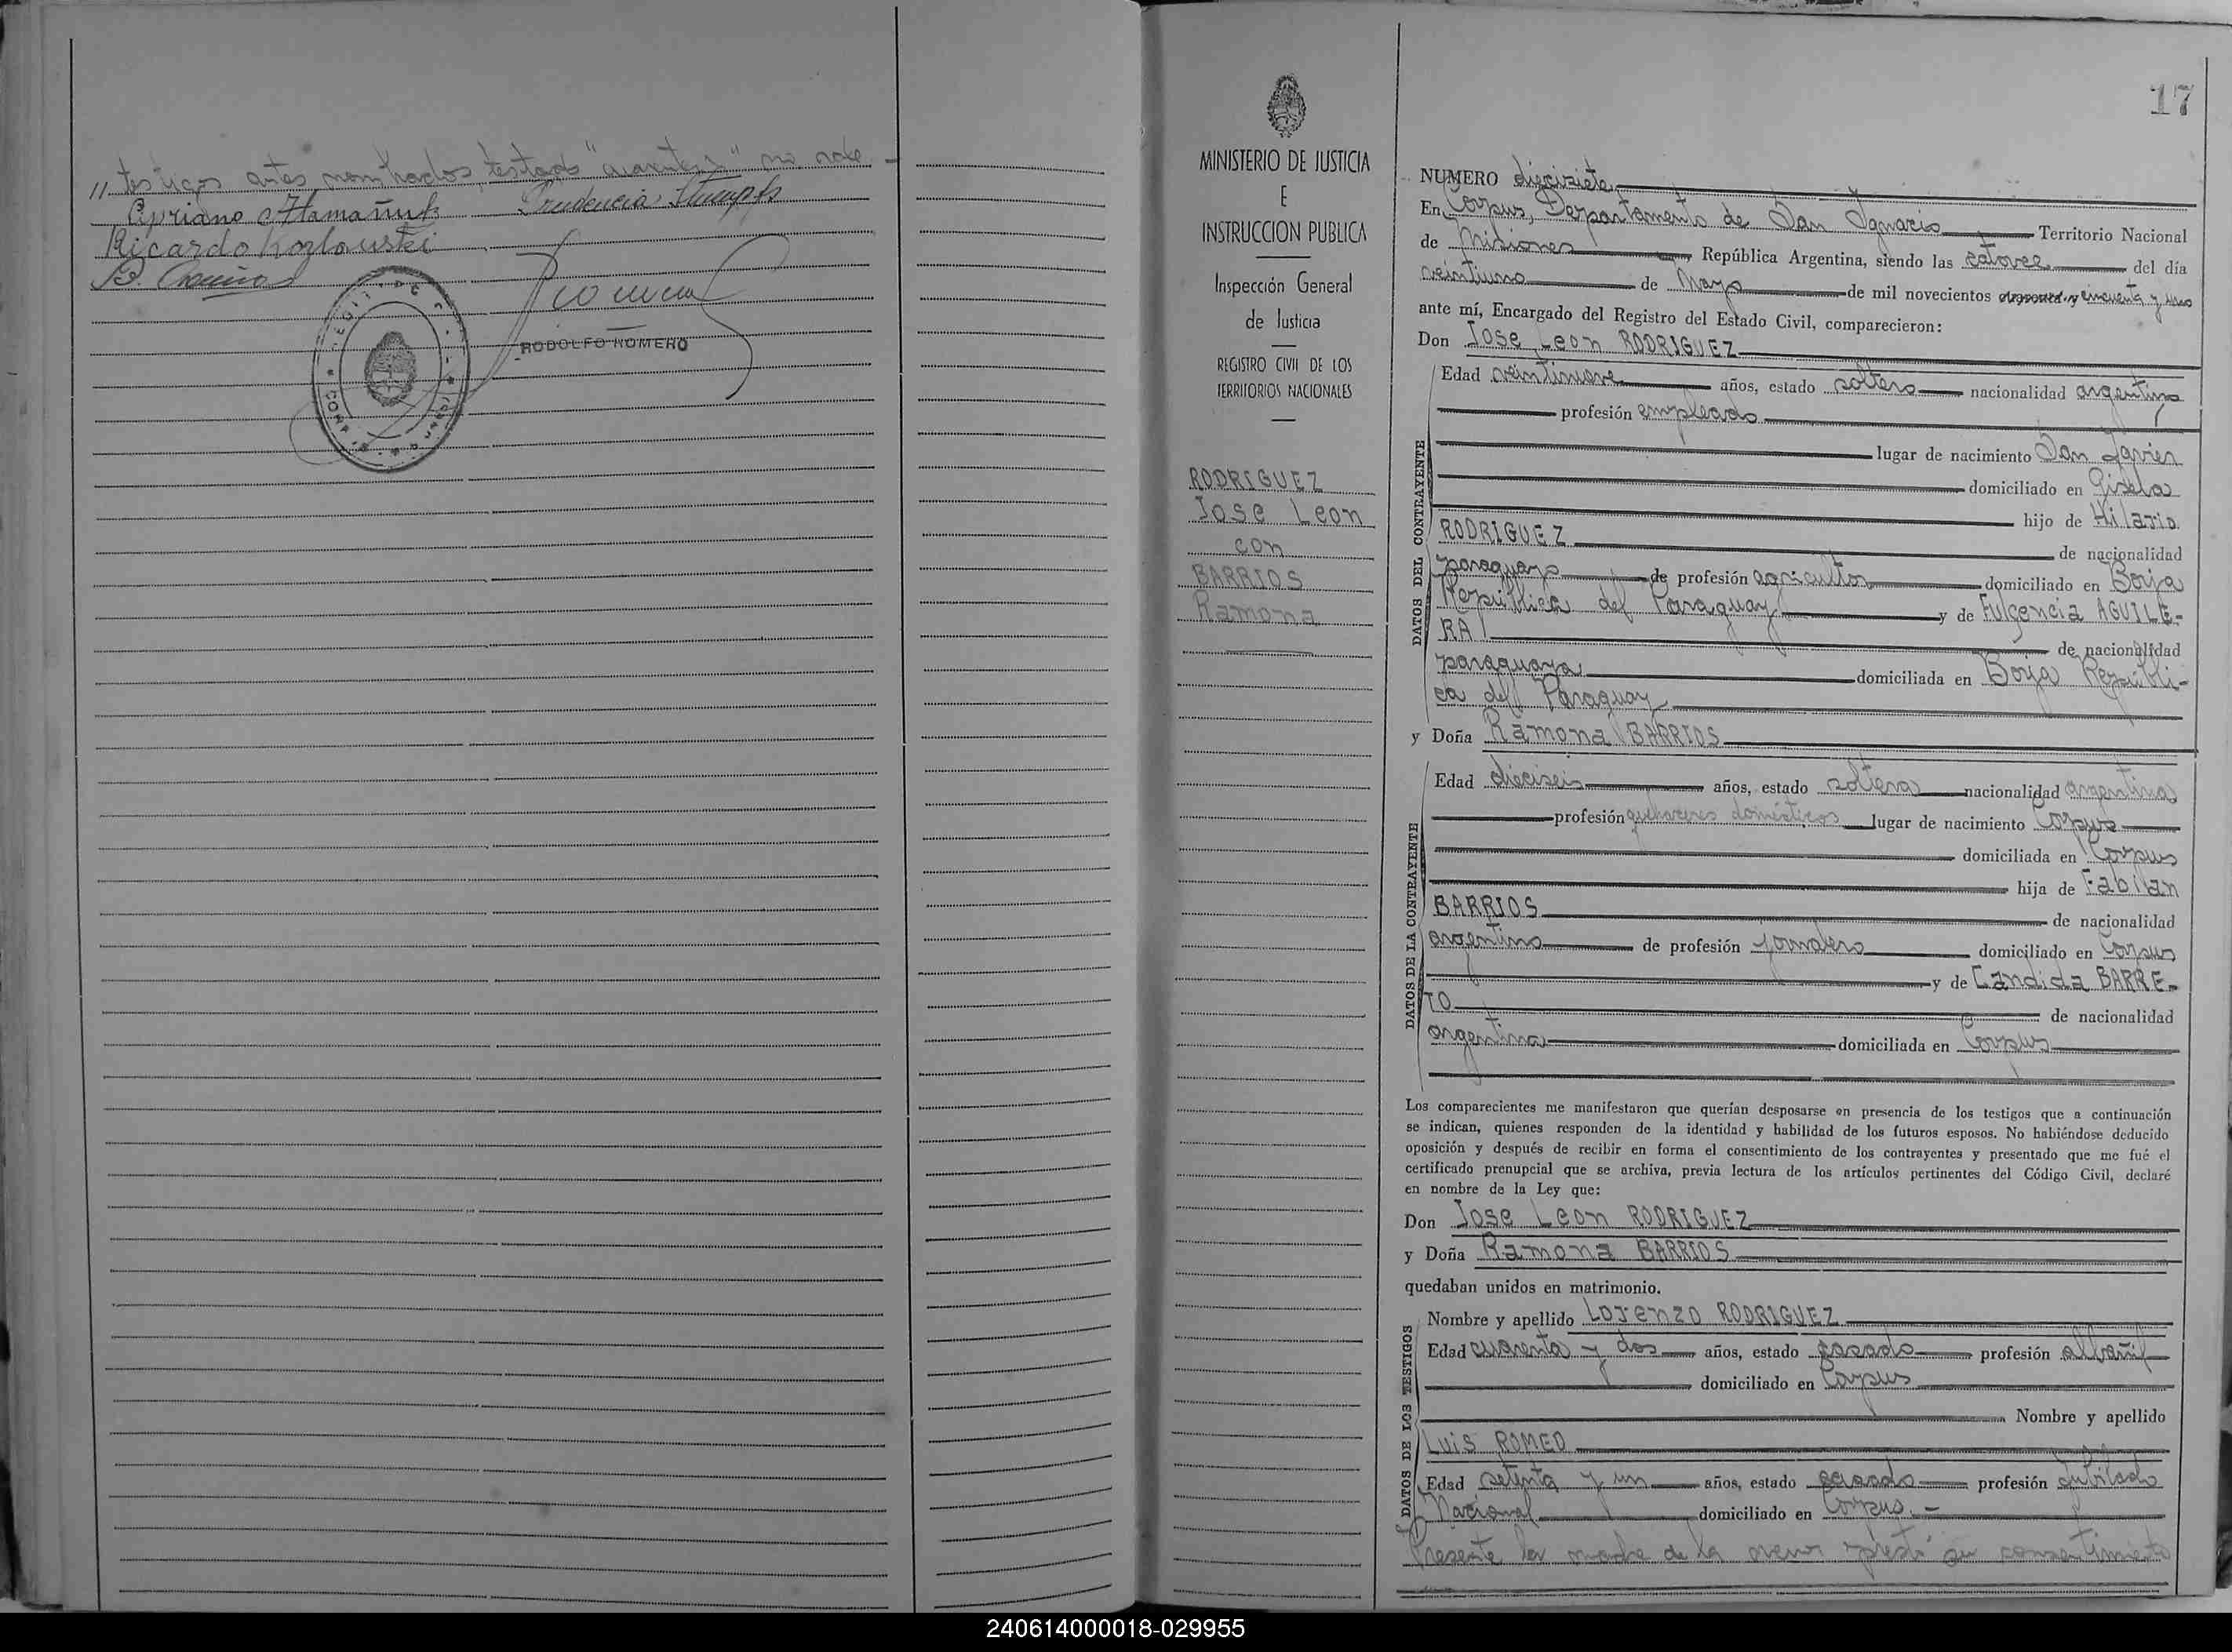 // testigos antes nombrados, testado "cuarenta y" no vale
Cipriano Prudencia
Ricardo Kozlowski
RODOLFO ROMERO
MINISTERIO DE JUSTICIA
E
INSTRUCCION PUBLICA
Inspección General
de Justicia
REGISTRO CIVIL DE LOS
TERRITORIOS NACIONALES
RODRIGUEZ
Jose Leon
con
BARRIOS
Ramona
17
NUMERO diecisiete
En Corpus, Departamento de San Ignacio Territorio Nacional
de Misiones República Argentina, siendo las catorce del día
veintiuno de Mayo de mil novecientos cincuenta y uno
ante mí, Encargado del Registro del Estado Civil, comparecieron:
Don Jose Leon RODRIGUEZ
DATOS DEL CONTRAYENTE
Edad veintinueve años, estado soltero nacionalidad argentina
profesión empleado
lugar de nacimiento San Javier
domiciliado en Gisela
hijo de Hilario
RODRIGUEZ de nacionalidad
paraguayo de profesión agricultor domiciliado en Borja
República del Paraguay y de Fulgencia AGUILE-
RA de nacionalidad
paraguaya domiciliada en Borja Repúbli-
ca del Paraguay
y Doña Ramona BARRIOS
DATOS DE LA CONTRAYENTE
Edad dieciseis años, estado soltera nacionalidad argentina
profesión quehaceres domésticos lugar de nacimiento Corpus
domiciliada en Corpus
hija de Fabilan
BARRIOS de nacionalidad
argentino de profesión jornalero domiciliado en Corpus
y de Candida BARRE-
TO de nacionalidad
argentina domiciliada en Corpus
Los comparecientes me manifestaron que querían desposarse en presencia de los testigos que a continuación
se indican, quienes responden de la identidad y habilidad de los futuros esposos. No habiéndose deducido
oposición y después de recibir en forma el consentimiento de los contrayentes y presentado que me fué el
certificado prenupcial que se archiva, previa lectura de los artículos pertinentes del Código Civil, declaré
en nombre de la Ley que:
Don Jose Leon RODRIGUEZ
y Doña Ramona BARRIOS
quedaban unidos en matrimonio.
DATOS DE LOS TESTIGOS
Nombre y apellido Lorenzo RODRIGUEZ
Edad cuarenta y dos años, estado casado profesión albañil
domiciliado en Corpus
Nombre y apellido
Luis ROMEO
Edad setenta y un años, estado casado profesión Jubilado
Nacional domiciliado en Corpus.-
Presente la madre de la menor prestó su consentimiento
240614000018-029955